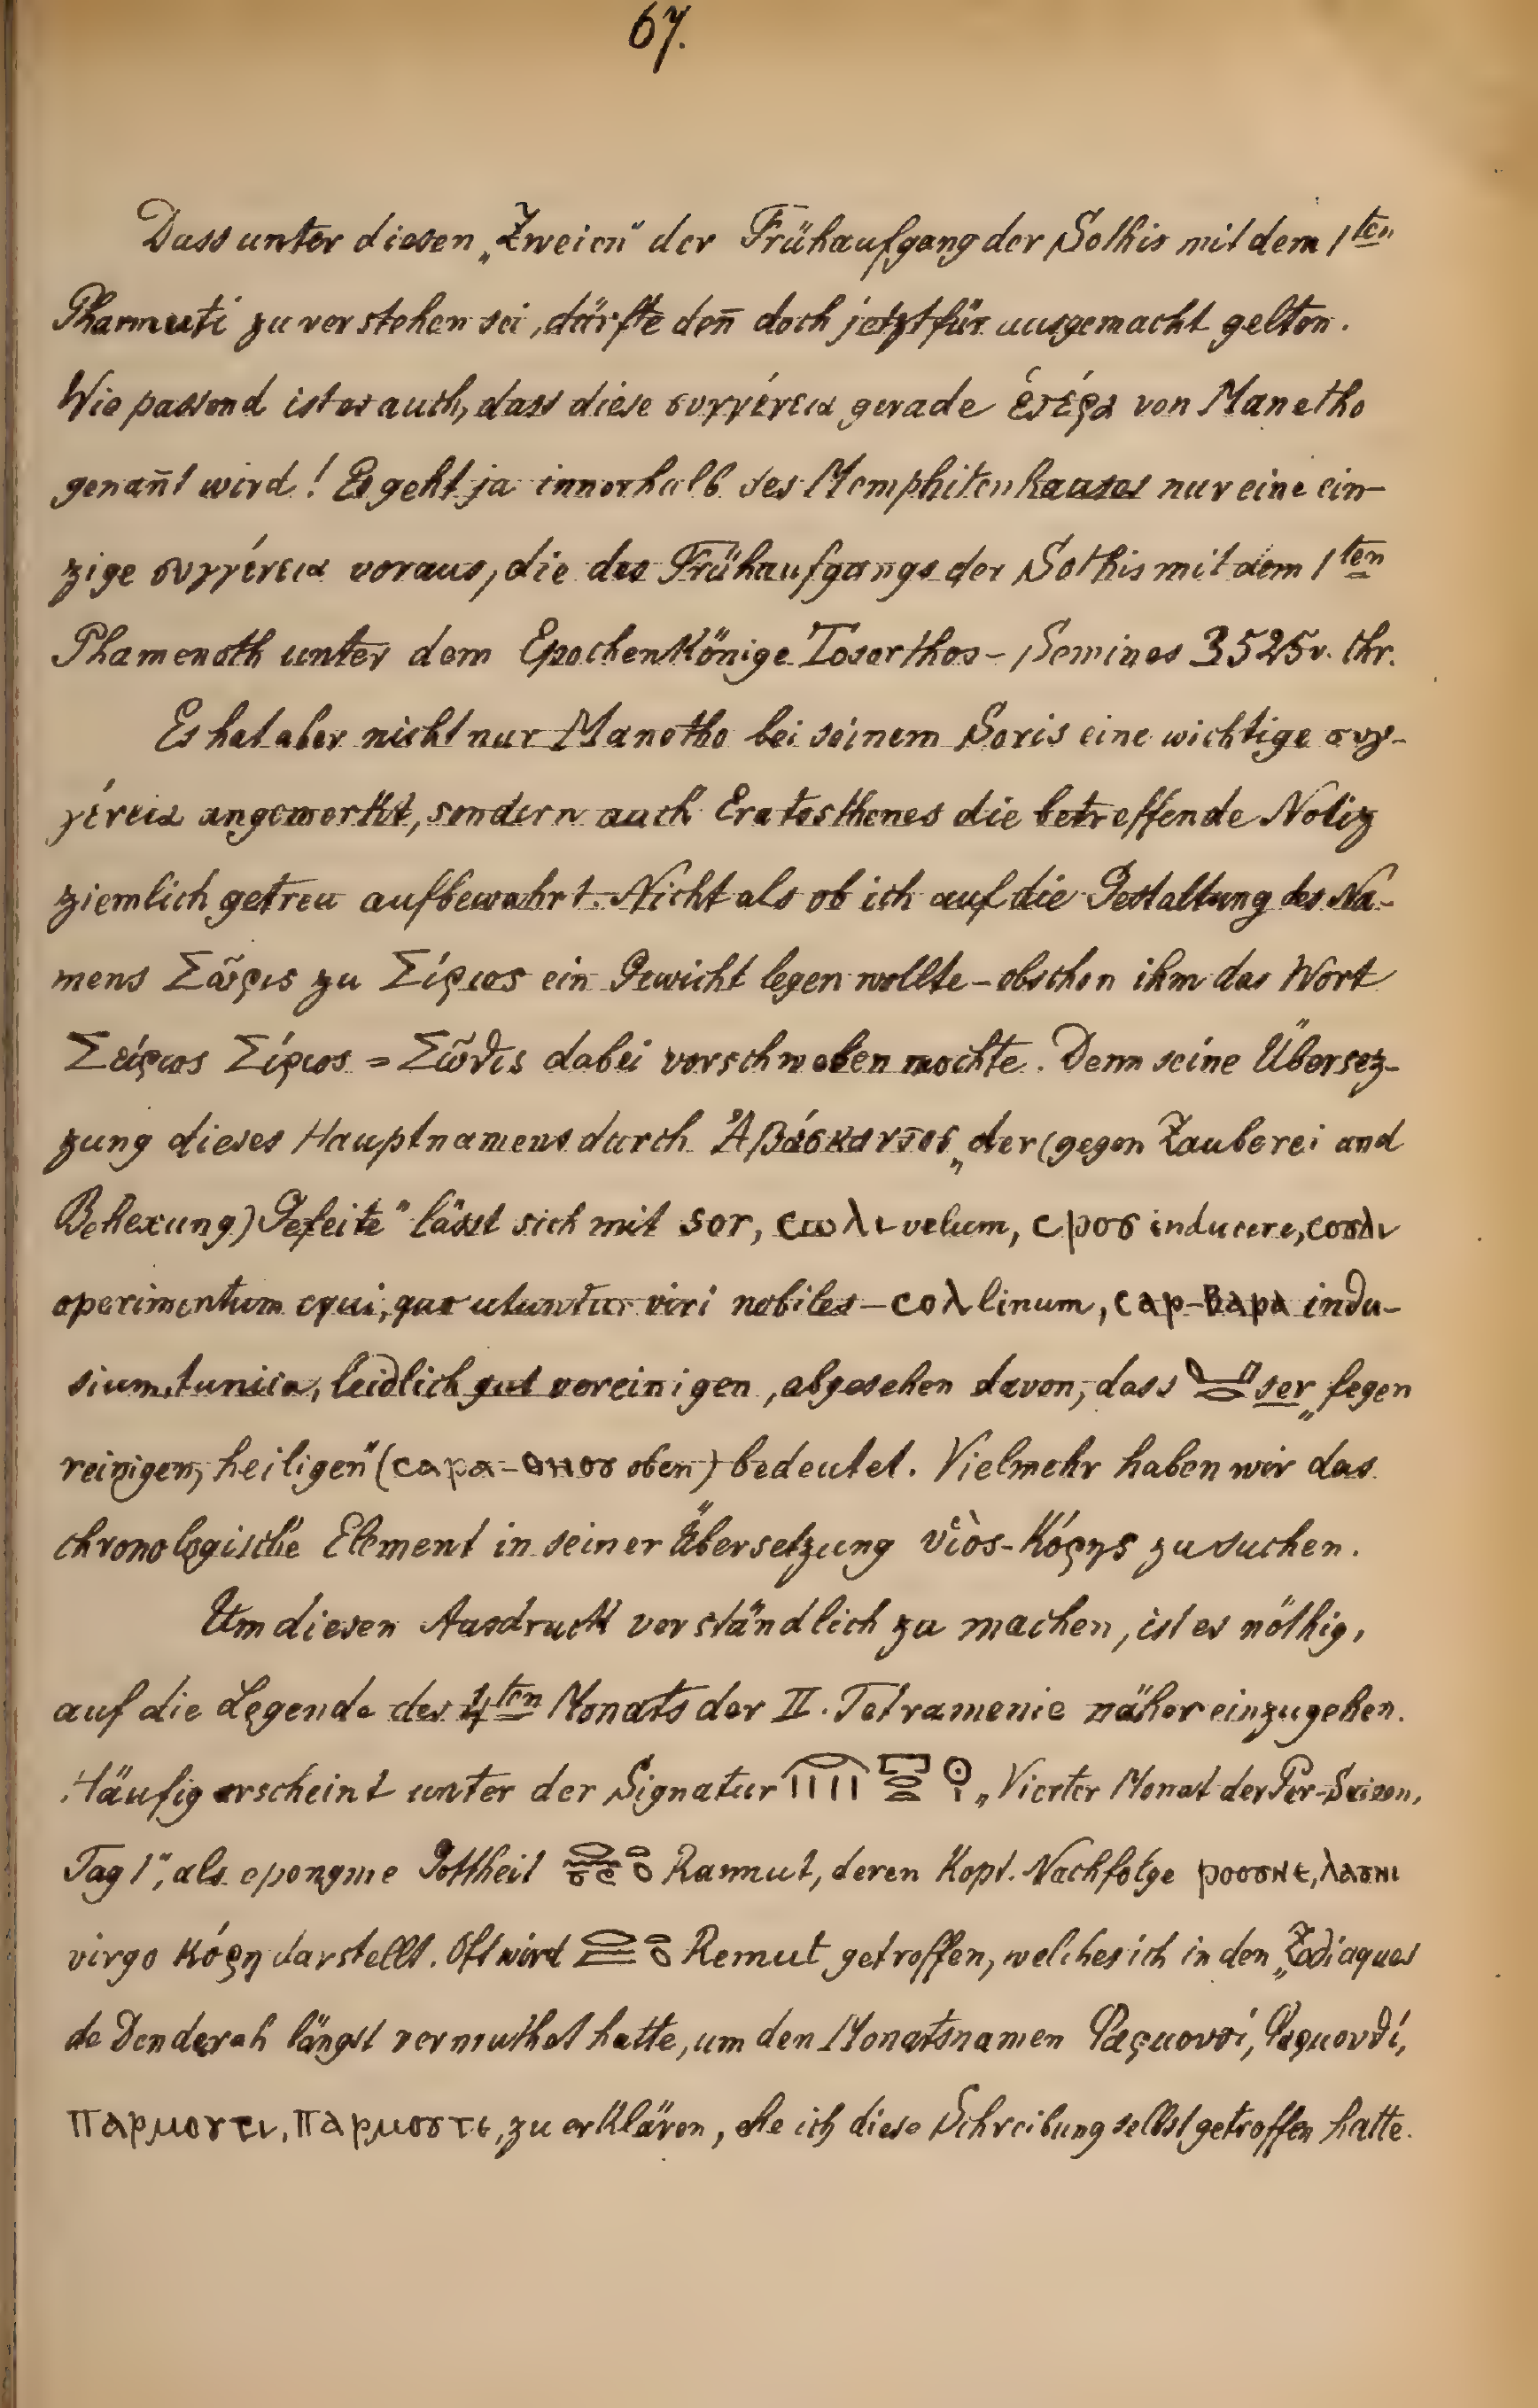 67.
Dass unter diesen „Zweien“ der Frühaufgang der Sothis mit dem 1ten
Pharmuti zu verstehen sei, dürfte den̄ doch jetzt für ausgemacht gelten.
Wie passend ist es auch, dass diese συγγένεια gerade ἑτέρα von Manetho
genan̄t wird! Es geht ja innerhalb des Memphitenhauses nur eine ein-
zige συγγένεια voraus, die des Frühaufgangs der Sothis mit dem 1ten
Phamenoth unter dem Epochenkönige Tosorthos-Semines 3525 v. Chr.
Es hat aber nicht nur Manetho bei seinem Soris eine wichtige συγ-
γένεια angemerkt, sondern auch Eratosthenes die betreffende Notiz
ziemlich getreu aufbewahrt. Nicht als ob ich auf die Gestaltung des Na-
mens Σῶρις zu Σίριος ein Gewicht legen wollte – obschon ihm das Wort
Σείριος Σίριος = Σῶθις dabei vorschweben mochte. Denn seine Übersez-
zung dieses Hauptnamens durch Ἀβάσκαντος „der (gegen Zauberei und
Behexung) Gefeite“ lässt sich mit sor, ⲥⲱⲗⲓ velum, ⲥⲣⲟϭ inducere,
operimentum equi, quo utuntur viri nobiles – ⲥⲟⲗ linum, ⲥⲁⲣ-ⲃⲁⲣⲁ indu-
sium, tunica, leidlich gut vereinigen, abgesehen davon, dass ser „fegen
reinigen, heiligen“ (oben) bedeutet. Vielmehr haben wir das
chronologische Element in seiner Übersetzung υἱὸς-Κόρης zu suchen.
Um diesen Ausdruck verständlich zu machen, ist es nöthig,
auf die Legende des 4ten Monats der II. Tetramenie näher einzugehen.
Häufig erscheint unter der Signatur „Vierter Monat der Per-Saison,
Tag 1“, als eponyme Gottheit Ranmut, deren kopt. Nachfolge
virgo κόρη darstellt. Oft wird Remut getroffen, welches ich in den „Zodiaques
de Denderah längst vermuthet hatte, um den Monatsnamen Φαρμουτί, Φαρμουθί,
ⲡⲁⲣⲙⲟⲩⲧⲓ, ⲡⲁⲣⲙⲟⲩⲧⲉ, zu erklären, ehe ich diese Schreibung selbst getroffen hatte.